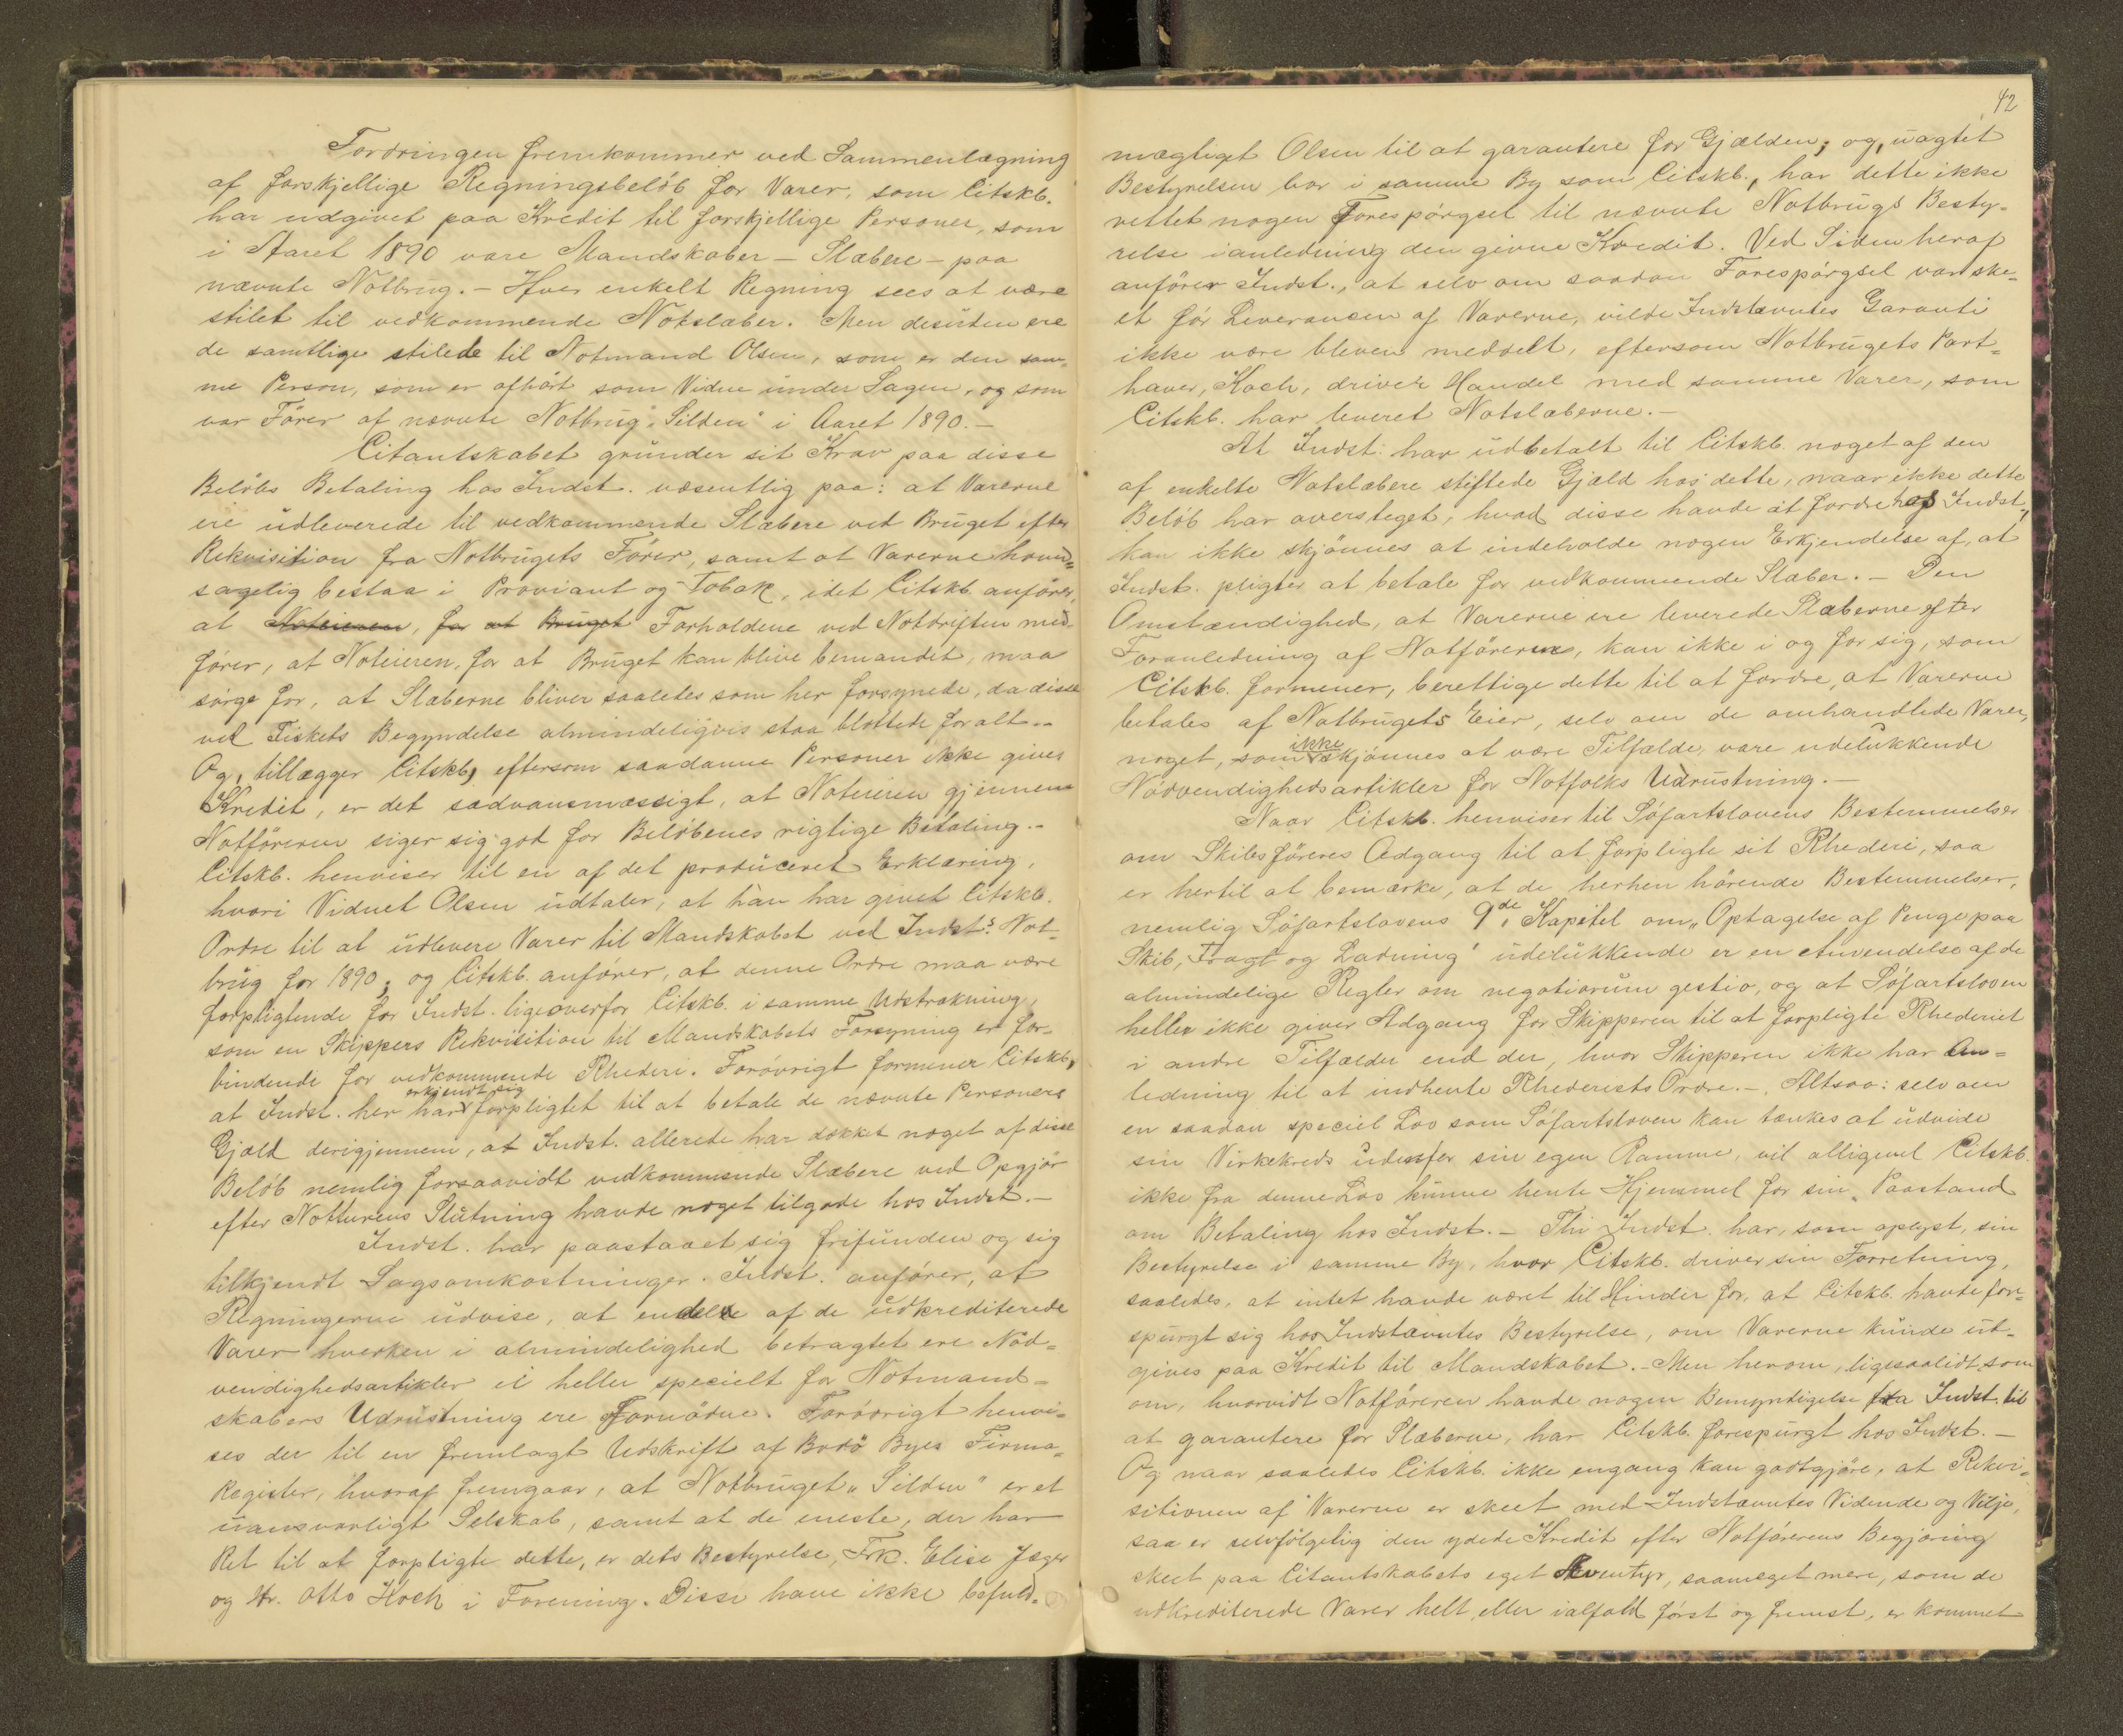 Fordringen fremkommer ved Sammenlægning
af forskjellige Regningsbeløb for Varer, som Citskb.
har udgivet paa Kredit til forskjellige Personer, som
i Aaret 1890 vare Mandskaber – Slæbere – paa
nævnte Notbrug. – Hver enkelt Regning sees at være
stilet til vedkommende Notslæber. Men desuten ere
de samtlige stilede til Notmand Olsen, som er den sam-
me Person, som er afhørt som Vidne under Sagen, og som
var Fører af nævnte Notbrug „Silden" i Aaret 1890. –
Citantskabet grunder sit Krav paa disse
Beløbs Betaling hos Indst. væsentlig paa: at Varerne
ere udleverede til vedkommende Slæbere ved Bruget efter
Rekvisition fra Notbrugets Fører, samt at Varerne hoved-
sagelig bestaa i Proviant og Tobak, idet Citskb. anfører,
at Noteieren, for at Bruget Forholdene ved Notdriften med-
fører, at Noteieren, for at Bruget kan blive bemandet, maa
sørge for, at Slæberne bliver saaledes som her forsynede, da disse
ved Fiskets Begyndelse almindeligvis staa blottede for alt. –
Og, tillægger Citskb, eftersom saadanne Personer ikke gives
Kredit, er det sædvansmæssigt, at Noteieren gjennem
Notføreren siger sig god for Beløbenes rigtige Betaling. –
Citskb. henviser til en af det produceret Erklæring,
hvori Vidnet Olsen udtaler, at han har givet Citskb.
Ordre til at udlevere Varer til Mandskabet ved Indst.s Not-
brug for 1890; og Citskb. anfører, at denne Ordre maa være
forpligtende for Indst. ligeoverfor Citskb. i samme Udstrækning,
som en Skippers Rekvisition til Mandskabets Forsyning er for-
bindende for vedkommende Rhederi. Forøvrigt formener Citskb,
at Indst. her har erkjendt sig forpligtet til at betale de nævnte Personers
Gjæld derigjennem, at Indst. allerede har dækket noget af disse
Beløb nemlig forsaavidt vedkommende Slæbere ved Opgjør
efter Notturens Slutning havde noget tilgode hos Indst. –
Indst. har paastaaet sig frifunden og sig
tilkjendt Sagsomkostninger. Indst. anfører, at
Regningerne udvise, at endel af de udkrediterede
Varer hverken i almindelighed betragtet ere Nød-
vendighedsartikler ei heller specielt for Notmand-
skabers Udrustning ere fornødne. Forøvrigt henvi-
ses der til en fremlagt Udskrift af Bodø Byes Firma-
Register, hvoraf fremgaar, at Notbruget „Silden" er et
uansvarligt Selskab, samt at de eneste, der har
Ret til at forpligte dette, er dets Bestyrelse, Frk. Elise Jæger
og Hr. Otto Koch i Forening. Disse have ikke befuld-
42
mægtiget Olsen til at garantere for Gjælden; og, uagtet
Bestyrelsen bor i samme By som Citskb., har dette ikke
rettet nogen Forespørgsel til nævnte Notbrugs Besty-
relse ianledning den givne Kredit. Ved Siden heraf
anfører Indst., at selv om saadan Forespørgsel var ske-
et før Leverancen af Varerne, vilde Indstævntes Garanti
ikke være bleven meddelt, eftersom Notbrugets Part-
haver, Koch, driver Handel med samme Varer, som
Citskb. har leveret Notslæberne. –
At Indst. har udbetalt til Citskb. noget af den
af enkelte Notslæbere stiftede Gjæld hos dette, naar ikke dette
Beløb har oversteget, hvad disse havde at fordre hos Indst.,
kan ikke skjønnes at indeholde nogen Erkjendelse af, at
Indst. pligter at betale for vedkommende Slæber. – Den
Omstændighed, at Varerne ere leverede Slæberne efter
Foranledning af Notføreren, kan ikke i og for sig, som
Citskb. formener, berettige dette til at fordre, at Varerne
betales af Notbrugets Eier, selv om de omhandlede Varer,
noget, som ikke skjønnes at være Tilfælde, vare udelukkende
Nødvendighedsartikler for Notfolks Udrustning. –
Naar Citskb. henviser til Søfartslovens Bestemmelser
om Skibsføreres Adgang til at forpligte sit Rhederi, saa
er hertil at bemærke, at de herhen hørende Bestemmelser,
nemlig Søfartslovens 9de Kapitel om „Optagelse af Penge paa
Skib, Fragt og Ladning" udelukkende er en Anvendelse af de
almindelige Regler om negotiorum gestio, og at Søfartsloven
heller ikke giver Adgang for Skipperen til at forpligte Rhederiet
i andre Tilfælder end der, hvor Skipperen ikke har An-
ledning til at indhente Rhederiets Ordre. – Altsaa: selv om
en saadan speciel Lov som Søfartsloven kan tænkes at udvide
sin Virkekreds udenfor sin egen Ramme, vil alligevel Citskb.
ikke fra denne Lov kunne hente Hjemmel for sin Paastand
om Betaling hos Indst. – Thi Indst. har, som oplyst, sin
Bestyrelse i samme By, hvor Citskb. driver sin Forretning,
saaledes, at intet havde været til Hinder for, at Citskb. havde for-
spurgt sig hos Indstævntes Bestyrelse, om Varerne kunde ud-
gives paa Kredit til Mandskabet. – Men herom, ligesaalidt som
om, hvorvidt Notføreren havde nogen Bemyndigelse fra Indst. til
at garantere for Slæberne, har Citskb. forespurgt hos Indst. –
Og naar saaledes Citskb. ikke engang kan godtgjøre, at Rekvi-
sitionen af Varerne er skeet med Indstævntes Vidende og Vilje,
saa er selvfølgelig den ydede Kredit efter Notførerens Begjæring
skeet paa Citantskabets eget Eventyr, saameget mere, som de
udkrediterede Varer helt, eller ialfald først og fremst, er kommet